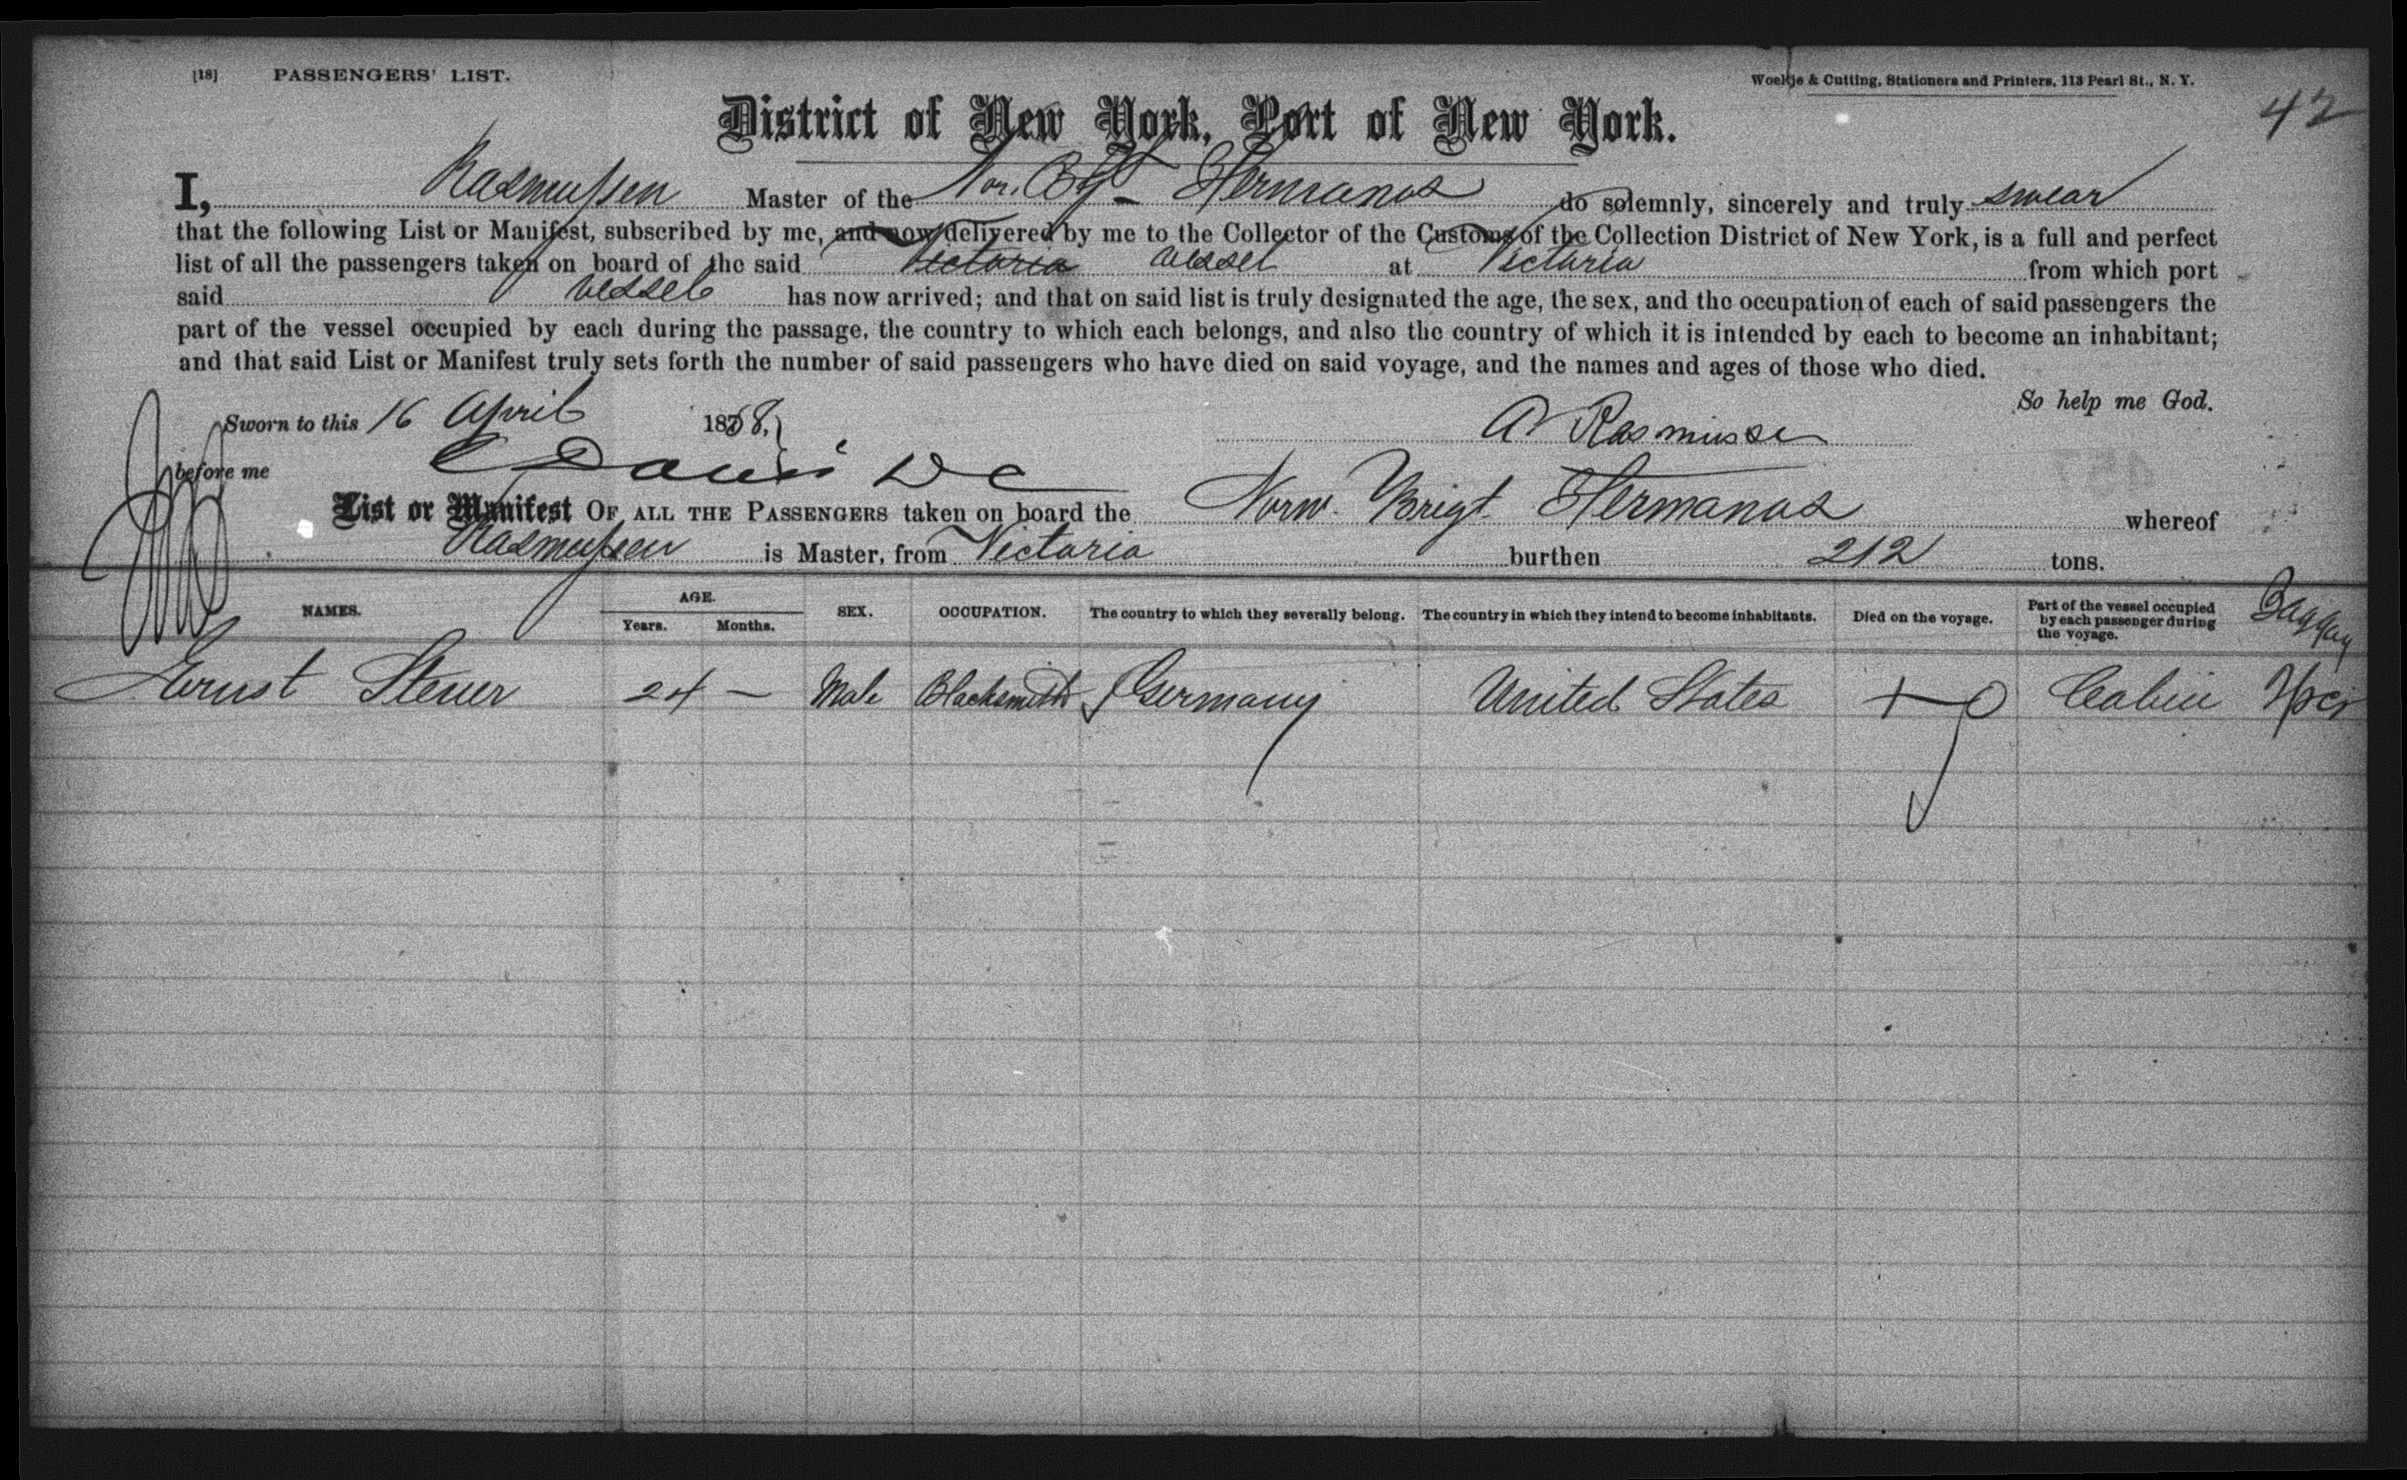 [18] PASSENGERS' LIST.
Woelfje & Cutting, Stationers and Printers, 113 Pearl St., N. Y.
42
District of New York, Port of New York.
I, Rasmussen Master of the Nor. Bgt Hermanos do solemnly, sincerely and truly swear
that the following List or Manifest, subscribed by me, and now delivered by me to the Collector of the Customs of the Collection District of New York, is a full and perfect
list of all the passengers taken on board of the said Victoria vessel at Victoria from which port
said vessel has now arrived; and that on said list is truly designated the age, the sex, and the occupation of each of said passengers the
part of the vessel occupied by each during the passage, the country to which each belongs, and also the country of which it is intended by each to become an inhabitant;
and that said List or Manifest truly sets forth the number of said passengers who have died on said voyage, and the names and ages of those who died.
So help me God.
Sworn to this 16 April 1888,
A Rasmussen
before me
List or Manifest OF ALL THE PASSENGERS taken on board the Norw. Brigt Hermanos whereof
Rasmussen is Master, from Victoria burthen 212 tons.
NAMES. AGE. Years. Months. SEX. OCCUPATION. The country to which they severally belong. The country in which they intend to become inhabitants. Died on the voyage. Part of the vessel occupied by each passenger during the voyage. Baggag
Ernst Steuer 24 — Male Blacksmith Germany United States Cabin